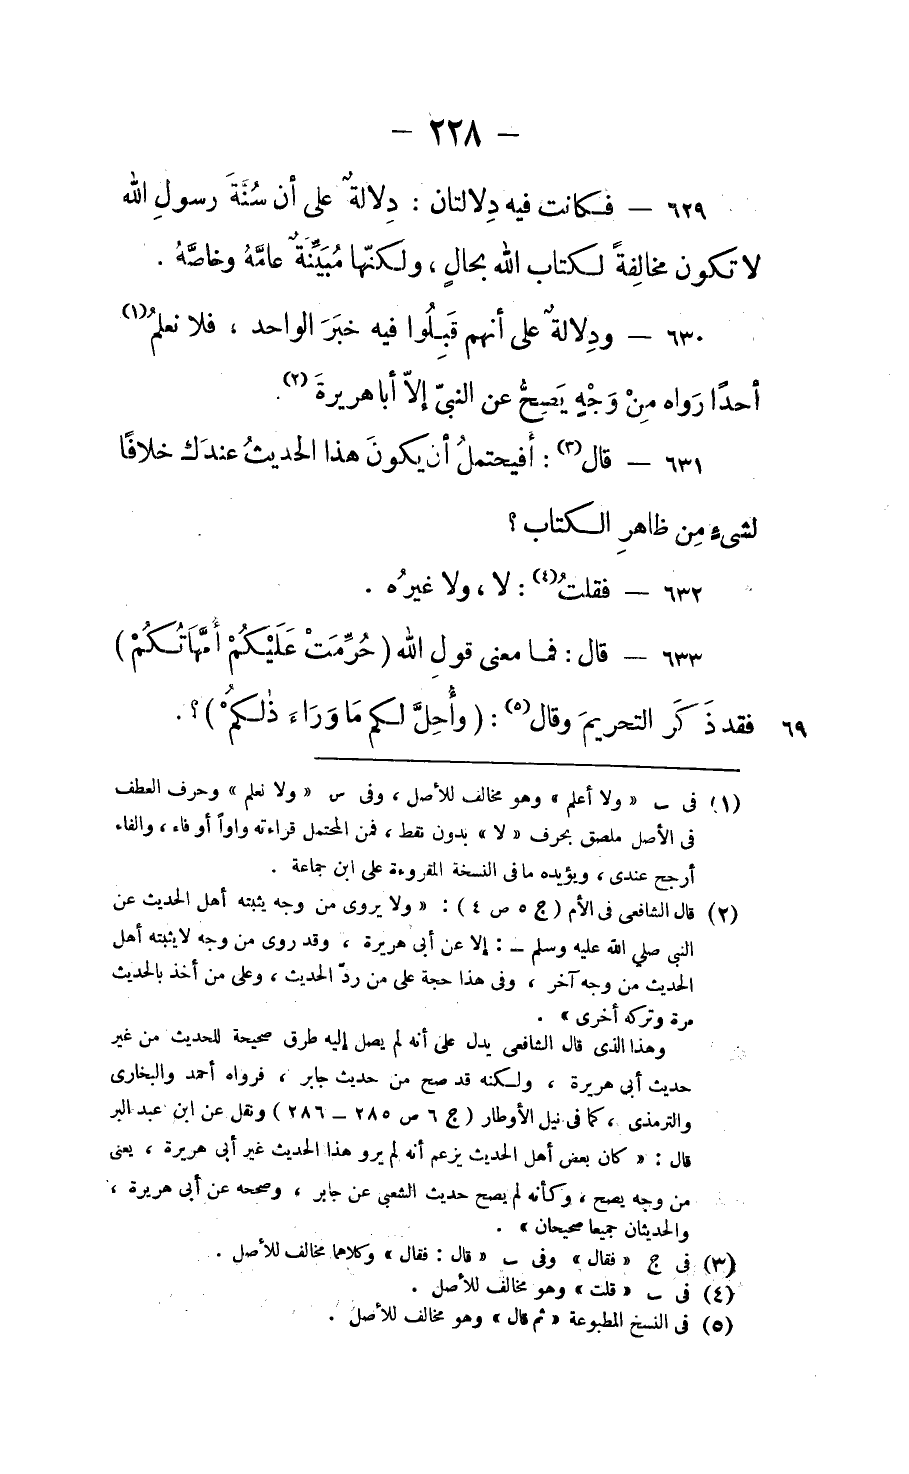 — ٢٢٨ —
٦٢٩ — فكانت فيه دِلالتان : دِلالةٌ على أن سُنَّةَ رسولِ الله
لا تكون مخالِفةً لكتاب الله بحالٍ ، ولكنّها مُبَيِّنَةٌ عامَّهُ وخاصَّهُ .
٦٣٠ — ودِلالةٌ على أنهم قَبِلُوا فيه خبَرَ الواحد ، فلا نعلمُ(١)
أحدًا رَواه مِنْ وَجْهٍ يَصِحُّ عن النبيّ إلاّ أبا هريرةَ(٢).
٦٣١ — قال(٣) : أَفيحتملُ أن يكونَ هذا الحديثُ عندَك خلافًا
لشيء مِن ظاهرِ الكتاب ؟
٦٣٢ — فقلتُ(٤) : لا ، ولا غيرُه .
٦٣٣ — قال : فما معنى قولِ الله ( حُرِّمَتْ عَلَيْكُمْ أُمَّهَاتُكُمْ )
٦٩ فقد ذَكَر التحريمَ وقال(٥) : ( وأُحِلَّ لكم مَا وَرَاءَ ذٰلكمُْ ) ؟ .
(١) فى ب « ولا أعلم » وهو مخالف للأصل ، وفى س « ولا نعلم » وحرف العطف
فى الأصل ملصق بحرف « لا » بدون نقط ، فمن المحتمل قراءته واواً أو فاء ، والفاء
أرجح عندى ، ويؤيده ما فى النسخة المقروءة على ابن جماعة .
(٢) قال الشافعى فى الأم ( ج ٥ ص ٤ ) : « ولا يروى من وجه يثبته أهل الحديث عن
النبى صلي الله عليه وسلم ـ : إلا عن أبى هريرة ، وقد روى من وجه لا يثبته أهل
الحديث من وجه آخر ، وفى هذا حجة على من ردّ الحديث ، وعلى من أخذ بالحديث
مرة وتركه أخرى » .
وهذا الذى قال الشافعى يدل على أنه لم يصل إليه طرق صحيحة للحديث من غير
حديث أبى هريرة ، ولكنه قد صح من حديث جابر ، فرواه أحمد والبخارى
والترمذى ، كما فى نيل الأوطار ( ج ٦ ص ٢٨٥ ـ ٢٨٦ ) ونقل عن ابن عبد البر
قال : « كان بعض أهل الحديث يزعم أنه لم يرو هذا الحديث غير أبى هريرة ، يعنى
من وجه يصح ، وكأنه لم يصح حديث الشعبى عن جابر ، وصححه عن أبى هريرة ،
والحديثان جميعا صحيحان » .
(٣) فى ج « فقال » وفى ب « قال : فقال » وكلاهما مخالف للأصل .
(٤) فى ب « قلت » وهو مخالف للأصل .
(٥) فى النسخ المطبوعة « ثم قال » وهو مخالف للأصل .